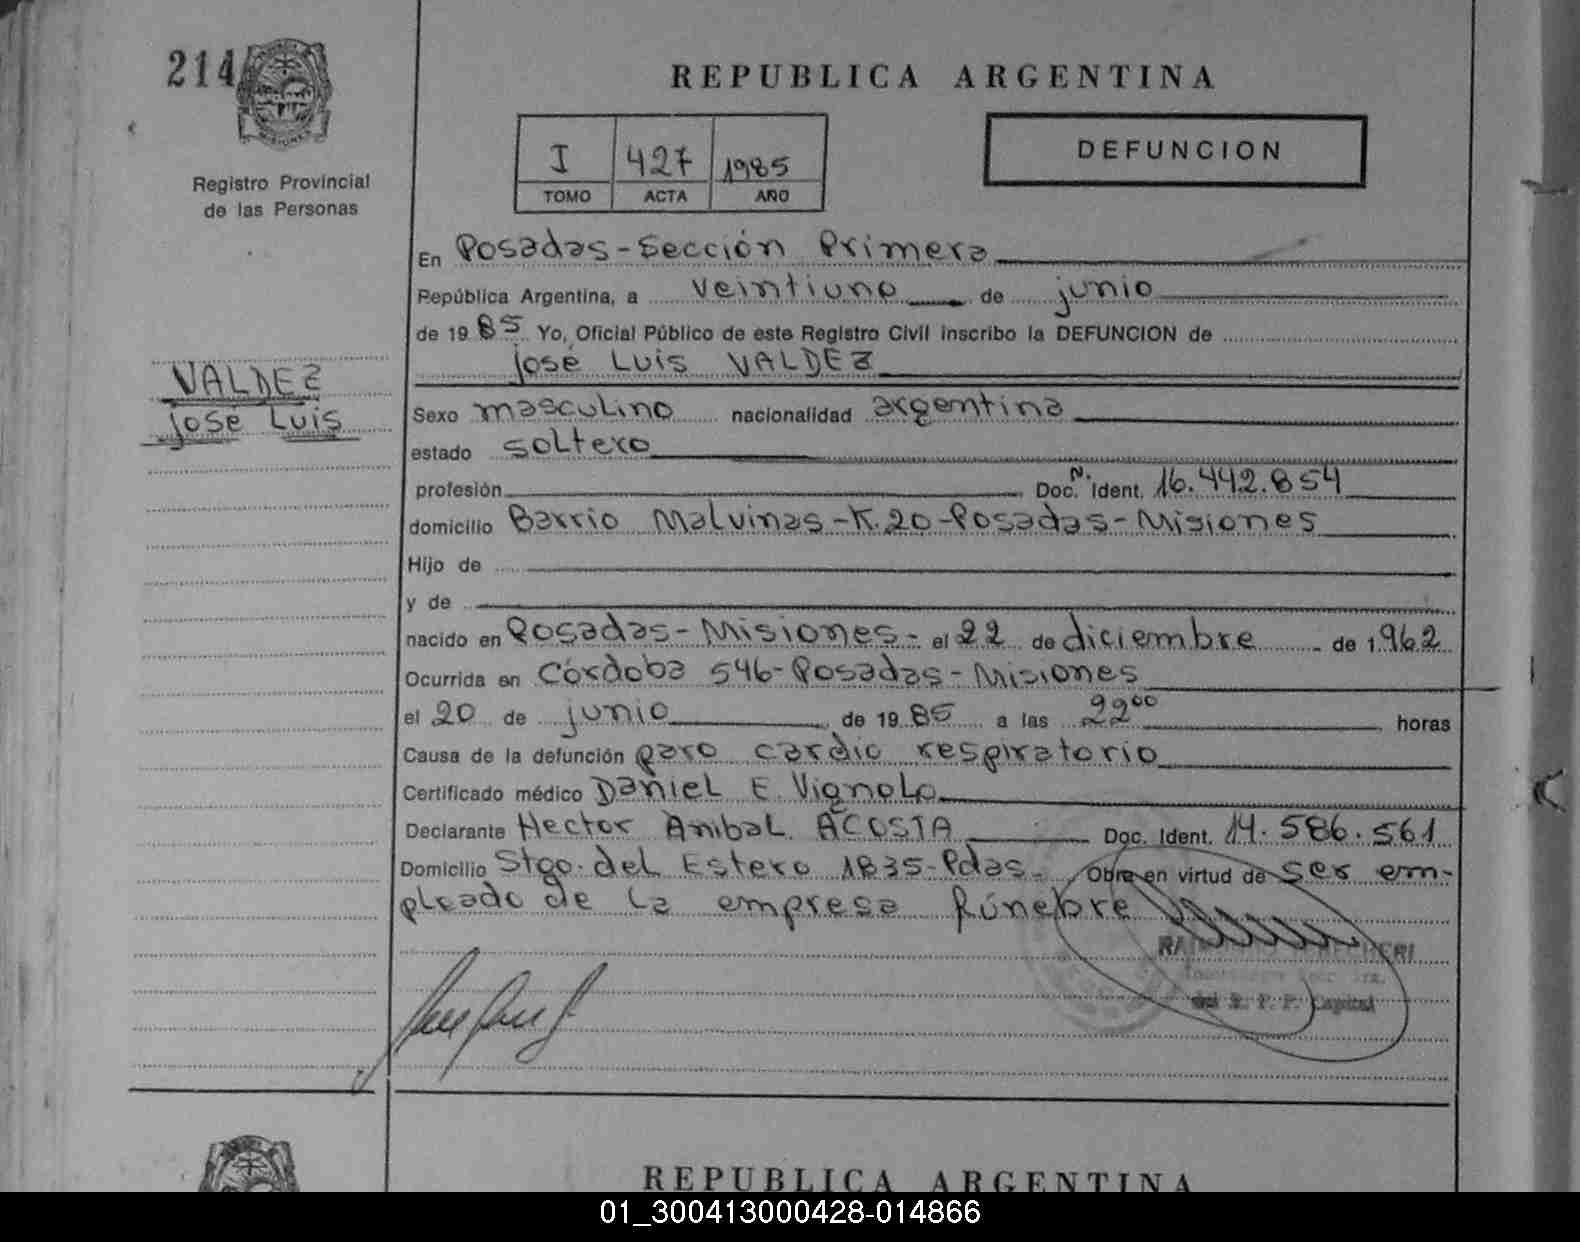 214
Registro Provincial
de las Personas
VALDEZ
José Luis
REPUBLICA ARGENTINA
I 427 1985
TOMO ACTA AÑO
DEFUNCION
En Posadas - Sección Primera
República Argentina, a veintiuno de junio
de 19 85 Yo, Oficial Público de este Registro Civil inscribo la DEFUNCION de
José Luis VALDEZ
Sexo masculino nacionalidad argentina
estado soltero
profesión Doc. N. Ident. 16.442.854
domicilio Barrio Malvinas-K.20-Posadas-Misiones
Hijo de
y de
nacido en Posadas-Misiones- el 22 de diciembre de 1962
Ocurrida en Córdoba 546-Posadas-Misiones
el 20 de junio de 19 85 a las 22 00 horas
Causa de la defunción paro cardio respiratorio
Certificado médico Daniel E. Vignolo
Declarante Hector Anibal ACOSTA Doc. Ident. 14.586.561
Domicilio Stgo. del Estero 1835-Pdas. Obra en virtud de ser em-
pleado de la empresa fúnebre
del R. P. P. Capital
REPUBLICA ARGENTINA
01_300413000428-014866